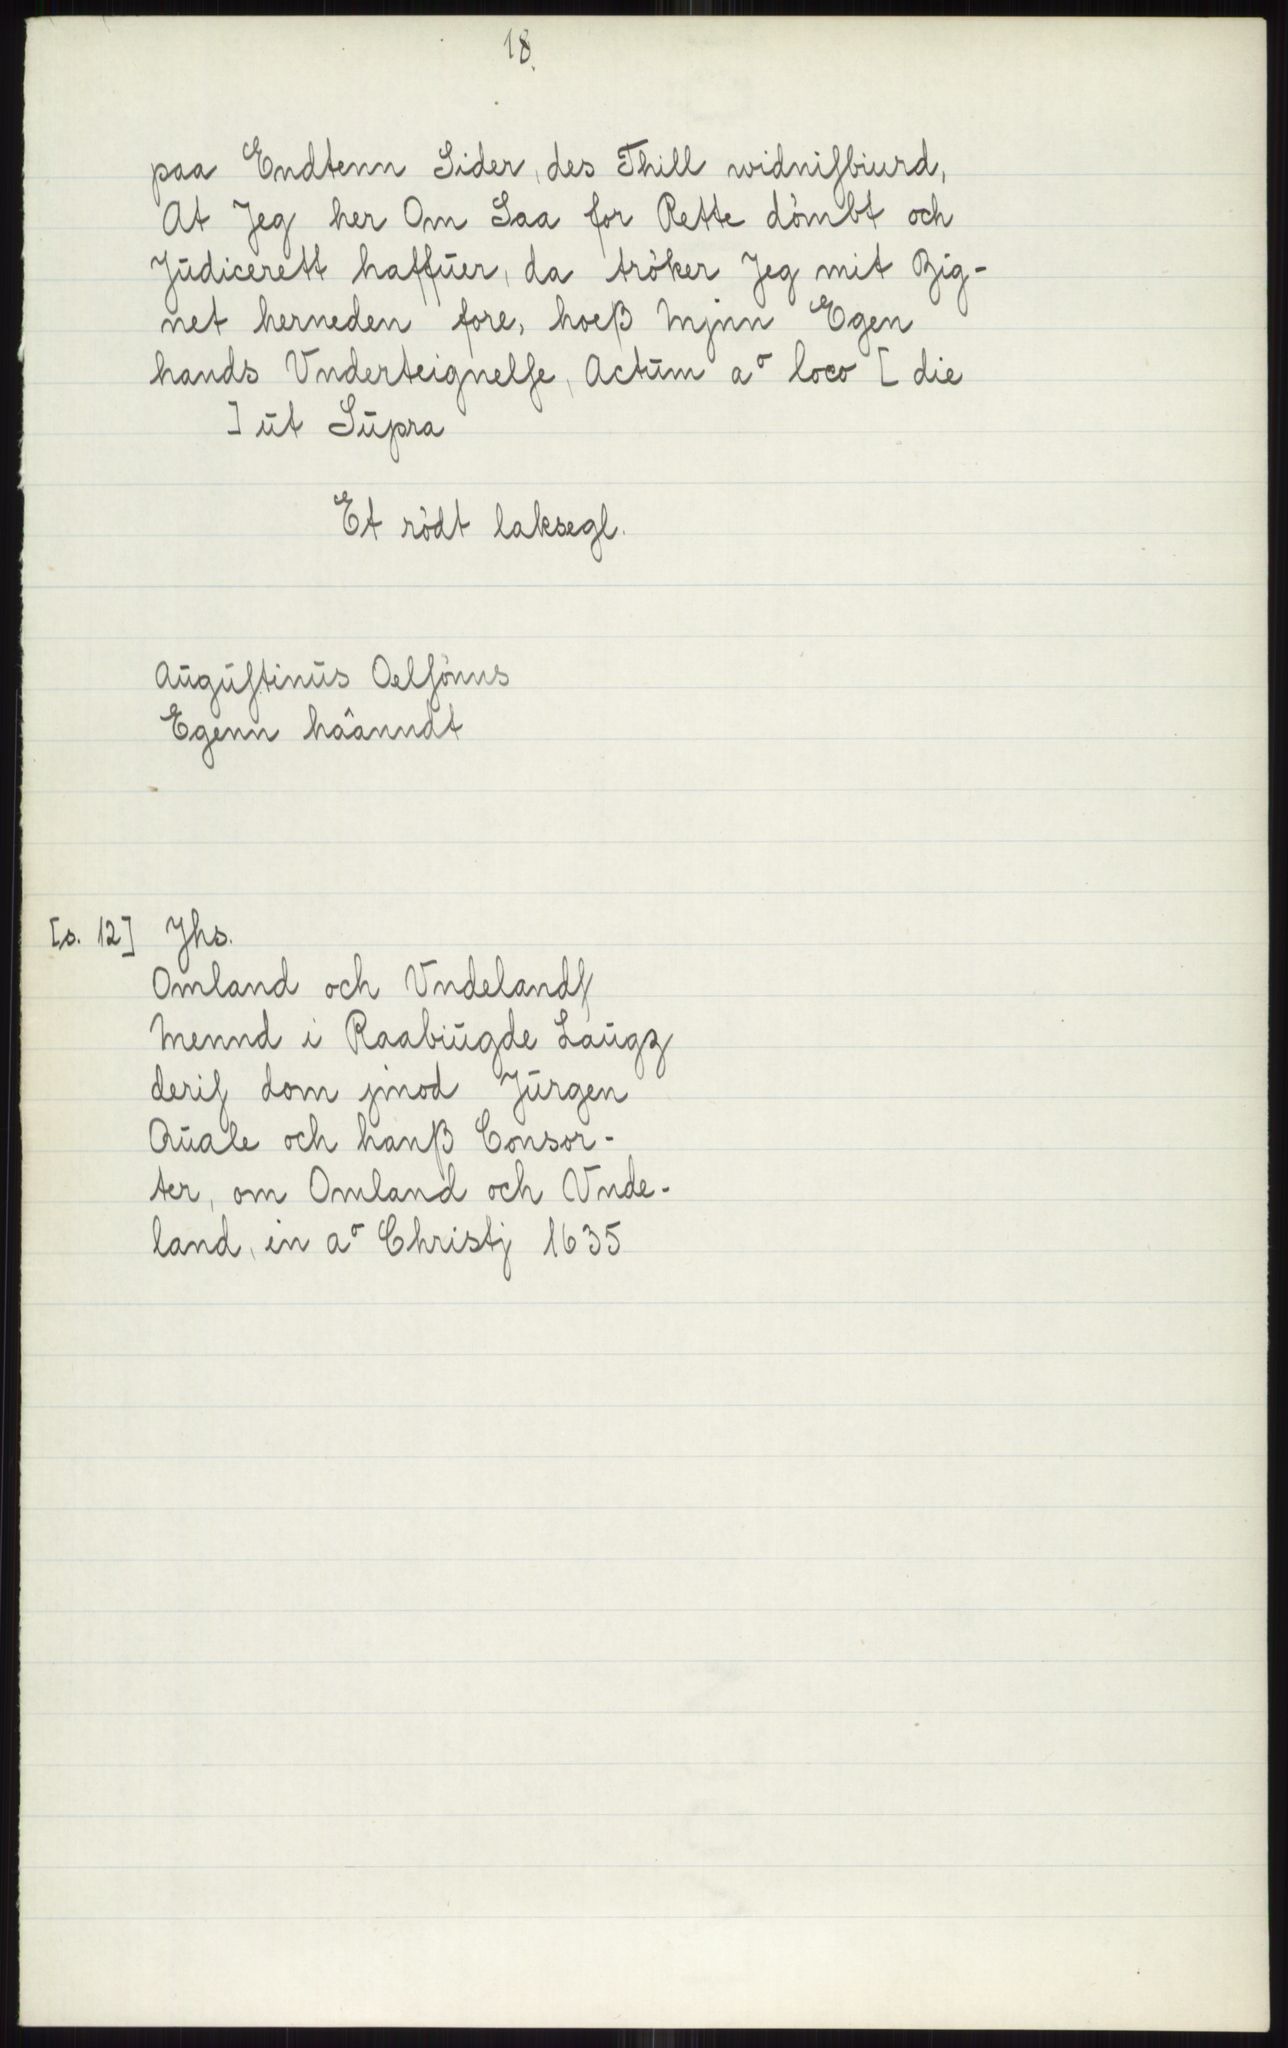 18.
paa Endtenn Sider, des Thill widniſbiurd,
At Jeg her Om Saa for Rette dömbt och
Jŭdicerett haffŭer, da tröker Jeg mit Zig-
net herneden fore, hoeß Mjnn Egen
hands Vnderteignelſe, Actŭm aº loco [ die
] ŭt Sŭpra
Et rödt laksegl.
Aŭgŭſtinŭs Oelſönns
Egenn hâanndt
[s. 12] Jhs.
Omland och Vndelandſ
Mennd i Raabiŭgde Laŭgz
deriſ dom jmod Jŭrgen
Qŭale och hanß Consor-
ter, om Omland och Vnde-
land, in aº Christj 1635